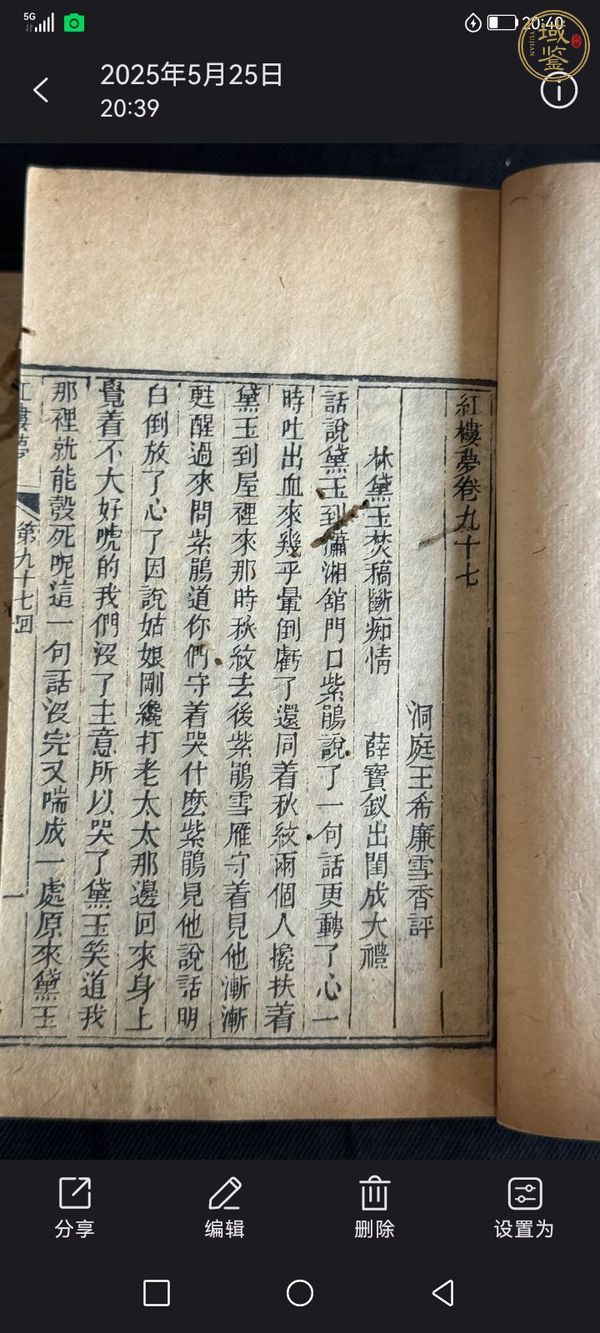 5G
20:40
域鉴
YUJIAN
2025年5月25日
20:39
紅樓夢卷九十七
洞庭王希廉雪香評
林黛玉焚稿斷痴情 薛寶釵出閨成大禮
話說黛玉到瀟湘舘門口紫鵑說了一句話更轉了心一
時吐出血來幾乎暈倒虧了還同着秋紋兩個人攙扶着
黛玉到屋裡來那時秋紋去後紫鵑雪雁守着見他漸漸
甦醒過來問紫鵑道你們守着哭什麽紫鵑見他說話明
白倒放了心了因說姑娘剛纔打老太太那邊回來身上
覺着不大好唬的我們沒了主意所以哭了黛玉笑道我
那裡就能彀死呢這一句話沒完又喘成一處原來黛玉
紅樓夢 第九十七回 一
分享
编辑
删除
设置为